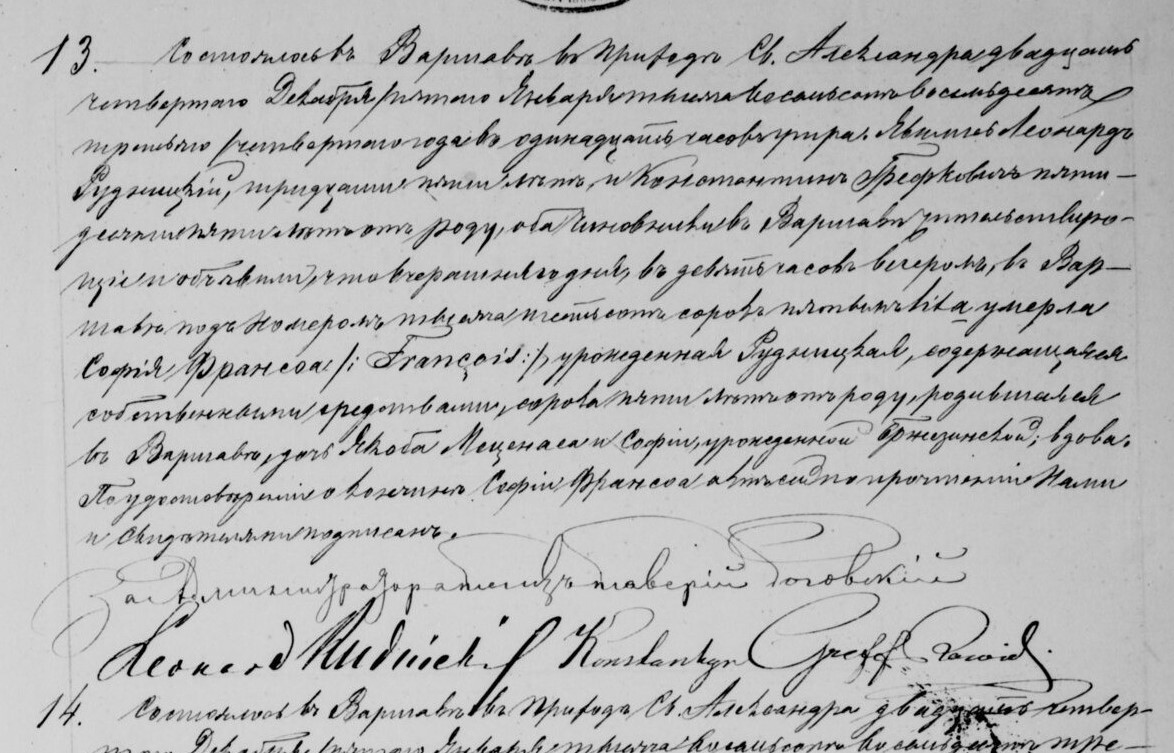 13. Состоялось въ Варшавѣ въ приходѣ Св. Александра двадцать
четвертаго Декабря /пятаго Января тысяча восемьсотъ восемьдесятъ
третьяго /четвертаго года въ одинадцать часовъ утра. Явились Леонардъ
Рудницкій, тридцати пяти лѣтъ, и Константинъ Грефковичъ пяти-
десяти пяти лѣтъ отъ роду, оба чиновники въ Варшавѣ жительствую-
щіе и объявили, что вчерашняго дня, въ девять часовъ вечеромъ, въ Вар-
шавѣ подъ номеромъ тысяча шестьсотъ сорокъ пятымъ умерла
Софія Франсоа /: François :/, урожденная Рудницкая, содержащаяся
собственными средствами, сорока пяти лѣтъ отъ роду, родившаяся
въ Варшавѣ, дочь Якоба Меценаса и Софіи, урожденной Бржезинской, вдова.
По удостовѣреніи о кончинѣ Софіи Франсоа актъ сей по прочтеніи Нами
и свидѣтелями подписанъ.
Leonard Rudnicki Konstantyn
14. Состоялось въ Варшавѣ въ приходѣ Св. Александра двадцать четвер-
таго Декабря /пятаго Января тысяча восемьсотъ восемьдесятъ тре-